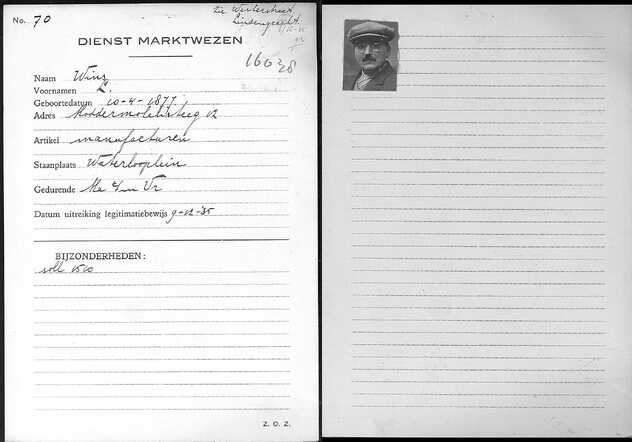 No. 70
zie Westerstraat
Lindengracht
DIENST MARKTWEZEN
16038
Naam Wins
Voornamen L.
Geboortedatum 10-4-1877
Adres Moddermolensteeg 12
Artikel manufacturen
Staanplaats Waterlooplein
Gedurende Ma t/m Vr
Datum uitreiking legitimatiebewijs 9-12-'35
BIJZONDERHEDEN:
Z. O. Z.